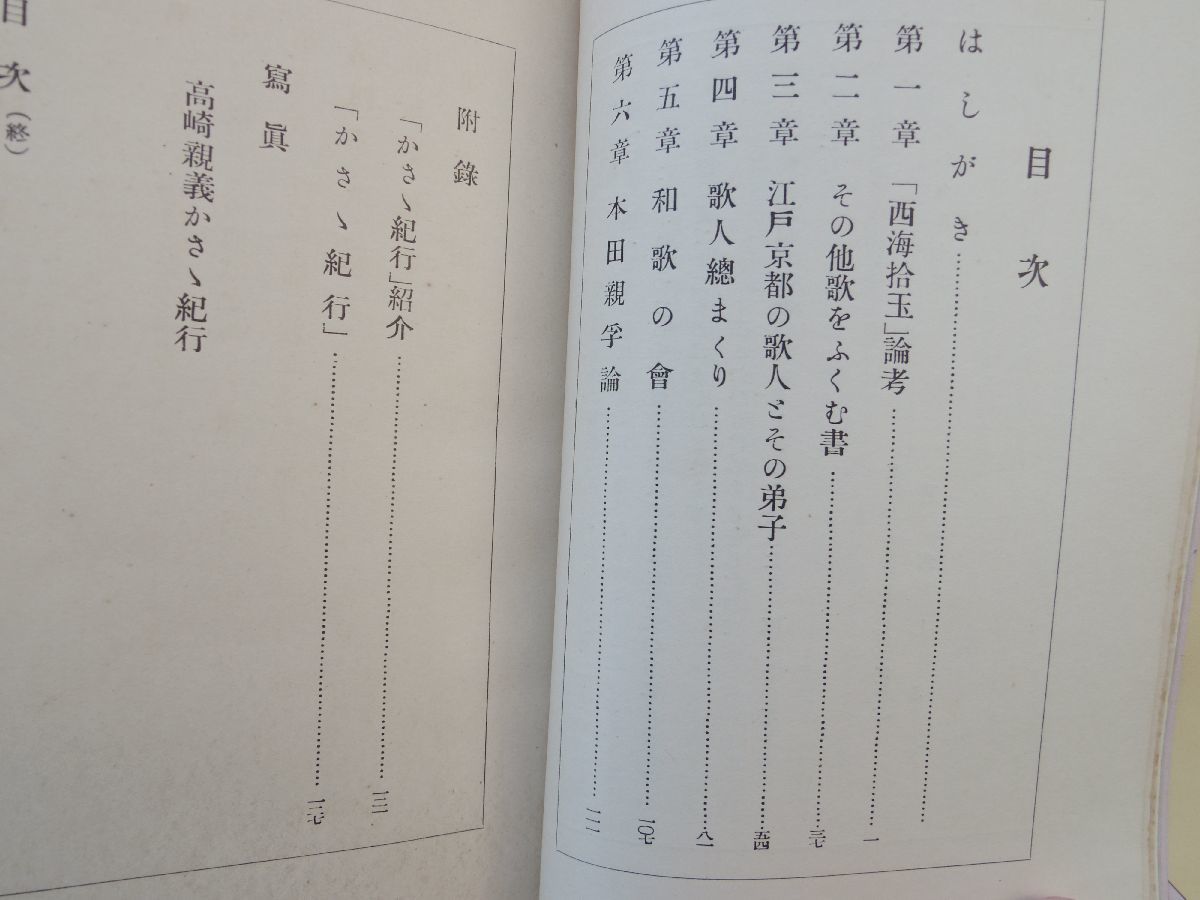 目次
はしがき
第一章 「西海拾玉」論考 一
第二章 その他歌をふくむ書 三七
第三章 江戸京都の歌人とその弟子 五四
第四章 歌人總まくり 八一
第五章 和歌の會 一〇七
第六章 本田親孚論 一一一
附錄
「かさゝ紀行」紹介 一二一
「かさゝ紀行」 一二七
寫眞
高崎親義かさゝ紀行
目次(終)